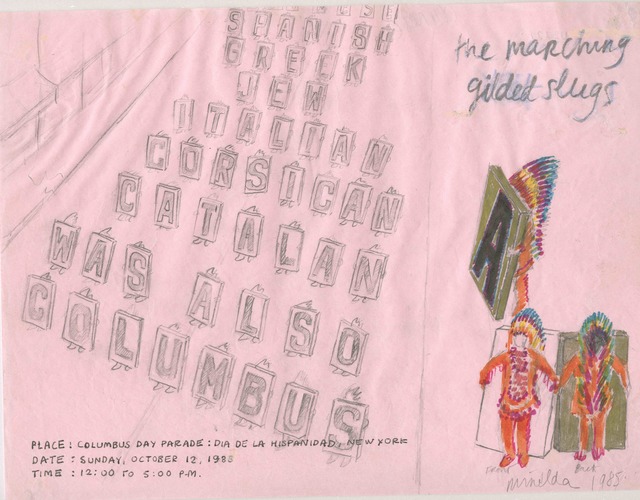 SPANISH
GREEK
JEW
ITALIAN
CORSICAN
CATALAN
WAS ALSO
COLUMBUS
PLACE : COLUMBUS DAY PARADE : DIA DE LA HISPANIDAD, NEW YORK
DATE : SUNDAY, OCTOBER 12, 1985
TIME : 12:00 TO 5:00 P.M.
the marching
gilded slugs
A
Back
1985.